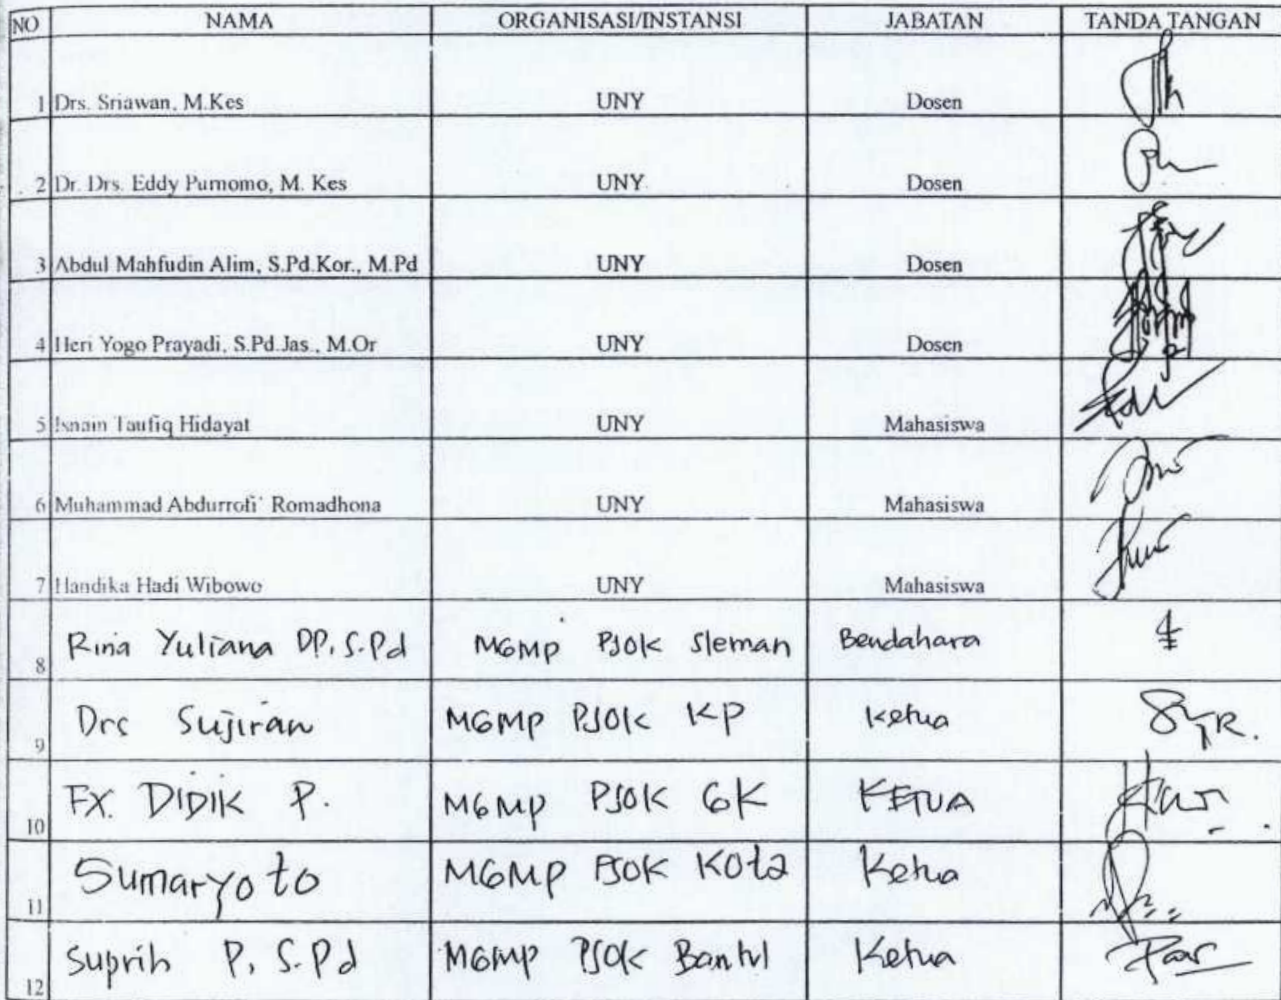 NO NAMA ORGANISASI/INSTANSI JABATAN TANDA TANGAN
1 Drs. Sriawan, M.Kes UNY Dosen
2 Dr. Drs. Eddy Purnomo, M. Kes UNY Dosen
3 Abdul Mahfudin Alim, S.Pd.Kor., M.Pd UNY Dosen
4 Heri Yogo Prayadi, S.Pd.Jas., M.Or UNY Dosen
5 Isnain Taufiq Hidayat UNY Mahasiswa
6 Muhammad Abdurrofi` Romadhona UNY Mahasiswa
7 Handika Hadi Wibowo UNY Mahasiswa
8 Rina Yuliana DP, S.Pd MGMP PJOK Sleman Bendahara
9 Drs Sujiran MGMP PJOK KP Ketua
10 FX. DIDIK P. MGMP PJOK GK KETUA
11 Sumaryoto MGMP PJOK Kota Ketua
12 Suprih P, S.Pd MGMP PJOK Bantul Ketua